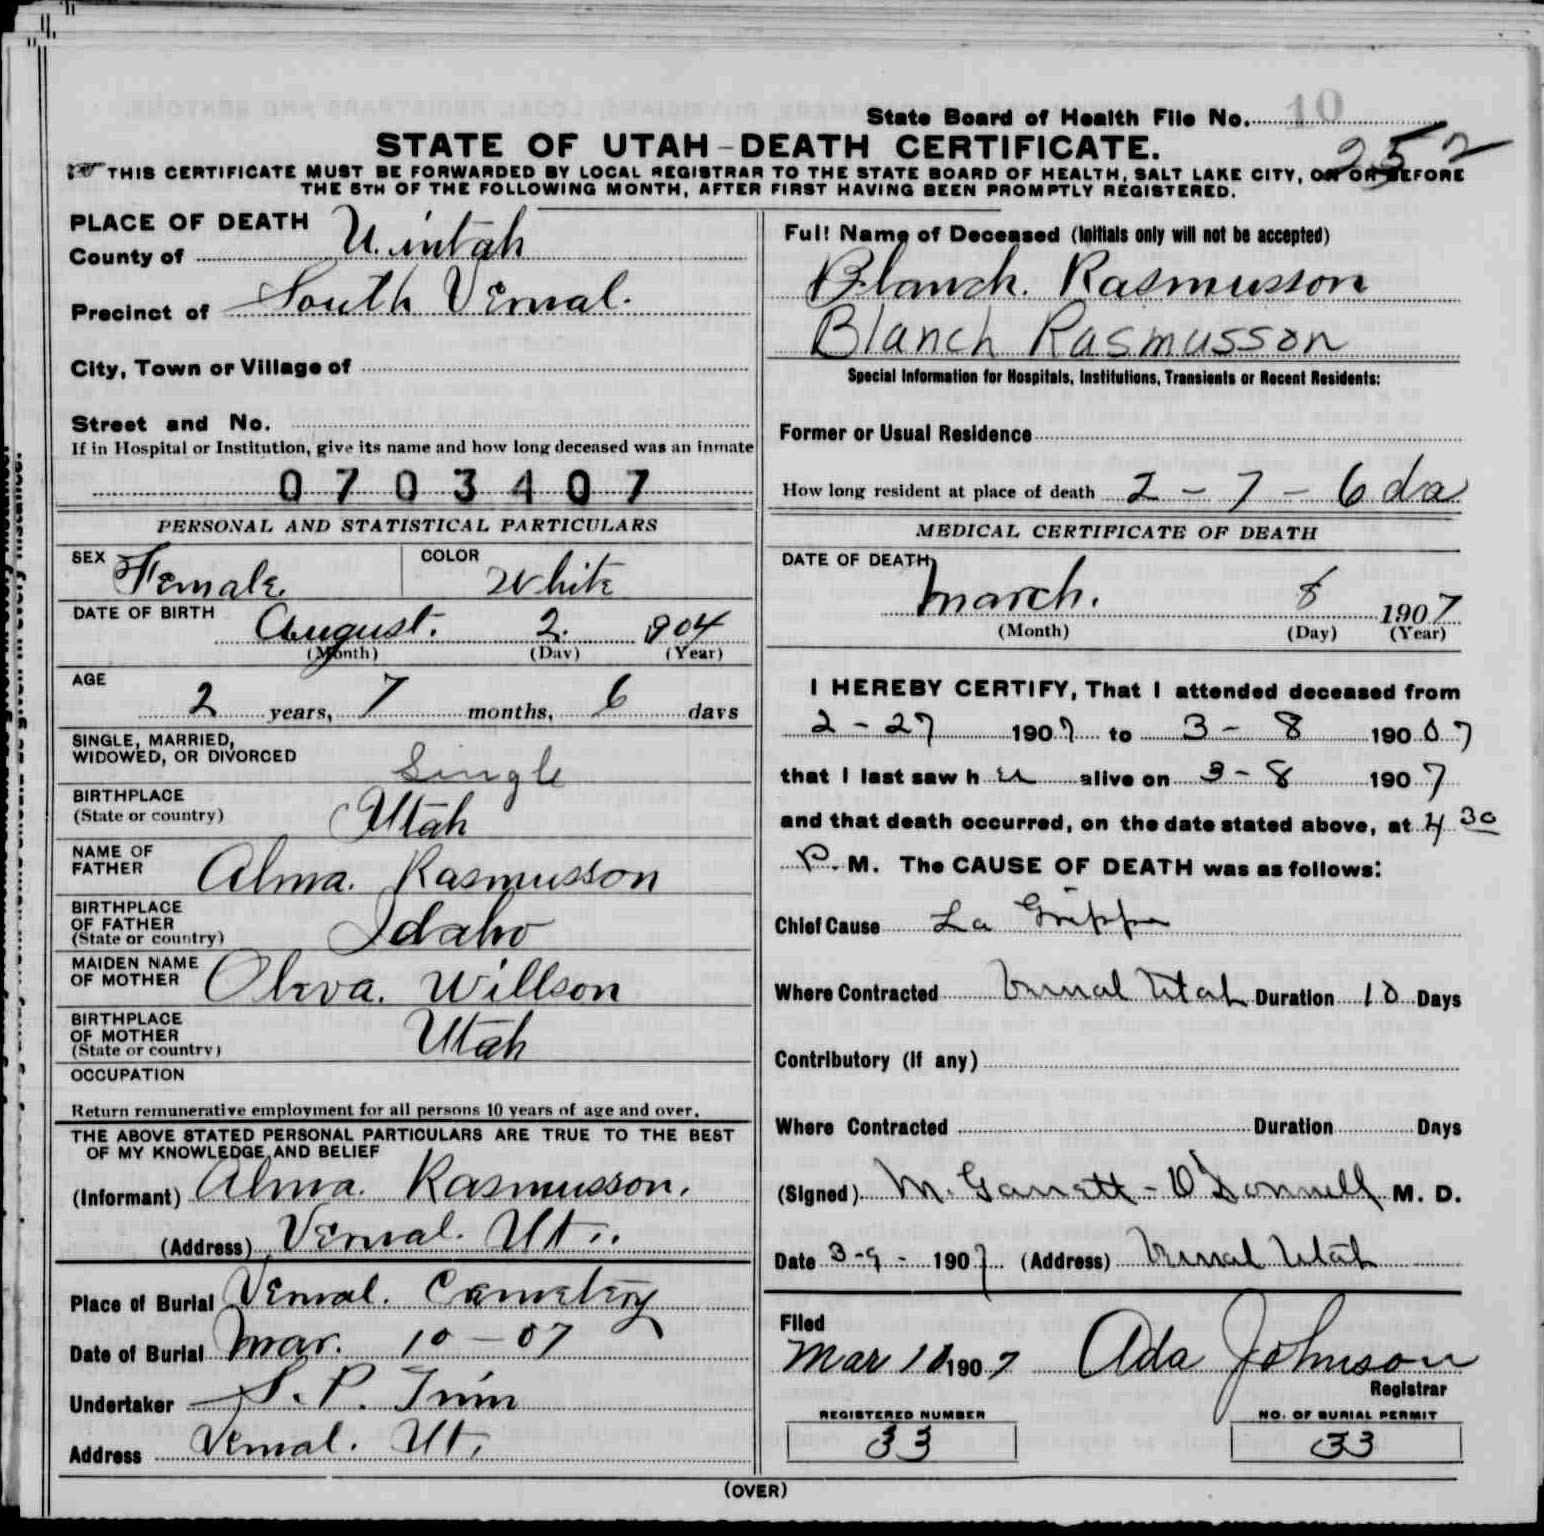 10
State Board of Health File No. 252
STATE OF UTAH-DEATH CERTIFICATE.
THIS CERTIFICATE MUST BE FORWARDED BY LOCAL REGISTRAR TO THE STATE BOARD OF HEALTH, SALT LAKE CITY, ON OR BEFORE
THE 5TH OF THE FOLLOWING MONTH, AFTER FIRST HAVING BEEN PROMPTLY REGISTERED.
PLACE OF DEATH
County of Uintah
Precinct of South Vernal.
City, Town or Village of
Street and No.
If in Hospital or Institution, give its name and how long deceased was an inmate
0703407
PERSONAL AND STATISTICAL PARTICULARS
SEX Female. COLOR White
DATE OF BIRTH August. 2. 1904
(Month) (Day) (Year)
AGE
2 years, 7 months, 6 days
SINGLE, MARRIED,
WIDOWED, OR DIVORCED Single
BIRTHPLACE
(State or country) Utah
NAME OF
FATHER Alma. Rasmusson
BIRTHPLACE
OF FATHER
(State or country) Idaho
MAIDEN NAME
OF MOTHER Oleva. Willson
BIRTHPLACE
OF MOTHER
(State or country) Utah
OCCUPATION
Return remunerative employment for all persons 10 years of age and over.
THE ABOVE STATED PERSONAL PARTICULARS ARE TRUE TO THE BEST
OF MY KNOWLEDGE AND BELIEF
(Informant) Alma. Rasmusson.
(Address) Vernal. Ut..
Place of Burial Vernal. Cemetery
Date of Burial Mar. 10-07
Undertaker S. P. Trim
Address Vernal. Ut.
Full Name of Deceased (Initials only will not be accepted)
Blanch. Rasmusson
Blanch Rasmusson
Special Information for Hospitals, Institutions, Transients or Recent Residents:
Former or Usual Residence
How long resident at place of death 2-7-6 da
MEDICAL CERTIFICATE OF DEATH
DATE OF DEATH
March. 8 1907
(Month) (Day) (Year)
I HEREBY CERTIFY, That I attended deceased from
2-27 1907 to 3-8 19007
that I last saw her alive on 3-8 1907
and that death occurred, on the date stated above, at 4 30
P. M. The CAUSE OF DEATH was as follows:
Chief Cause La Grippe
Where Contracted Vernal Utah Duration 10 Days
Contributory (If any)
Where Contracted Duration Days
(Signed) M. Garrett-O'Donnell M. D.
Date 3-9-1907 (Address) Vernal Utah
Filed
Mar 10 1907 Ada Johnson
Registrar
REGISTERED NUMBER
33
NO. OF BURIAL PERMIT
33
(OVER)